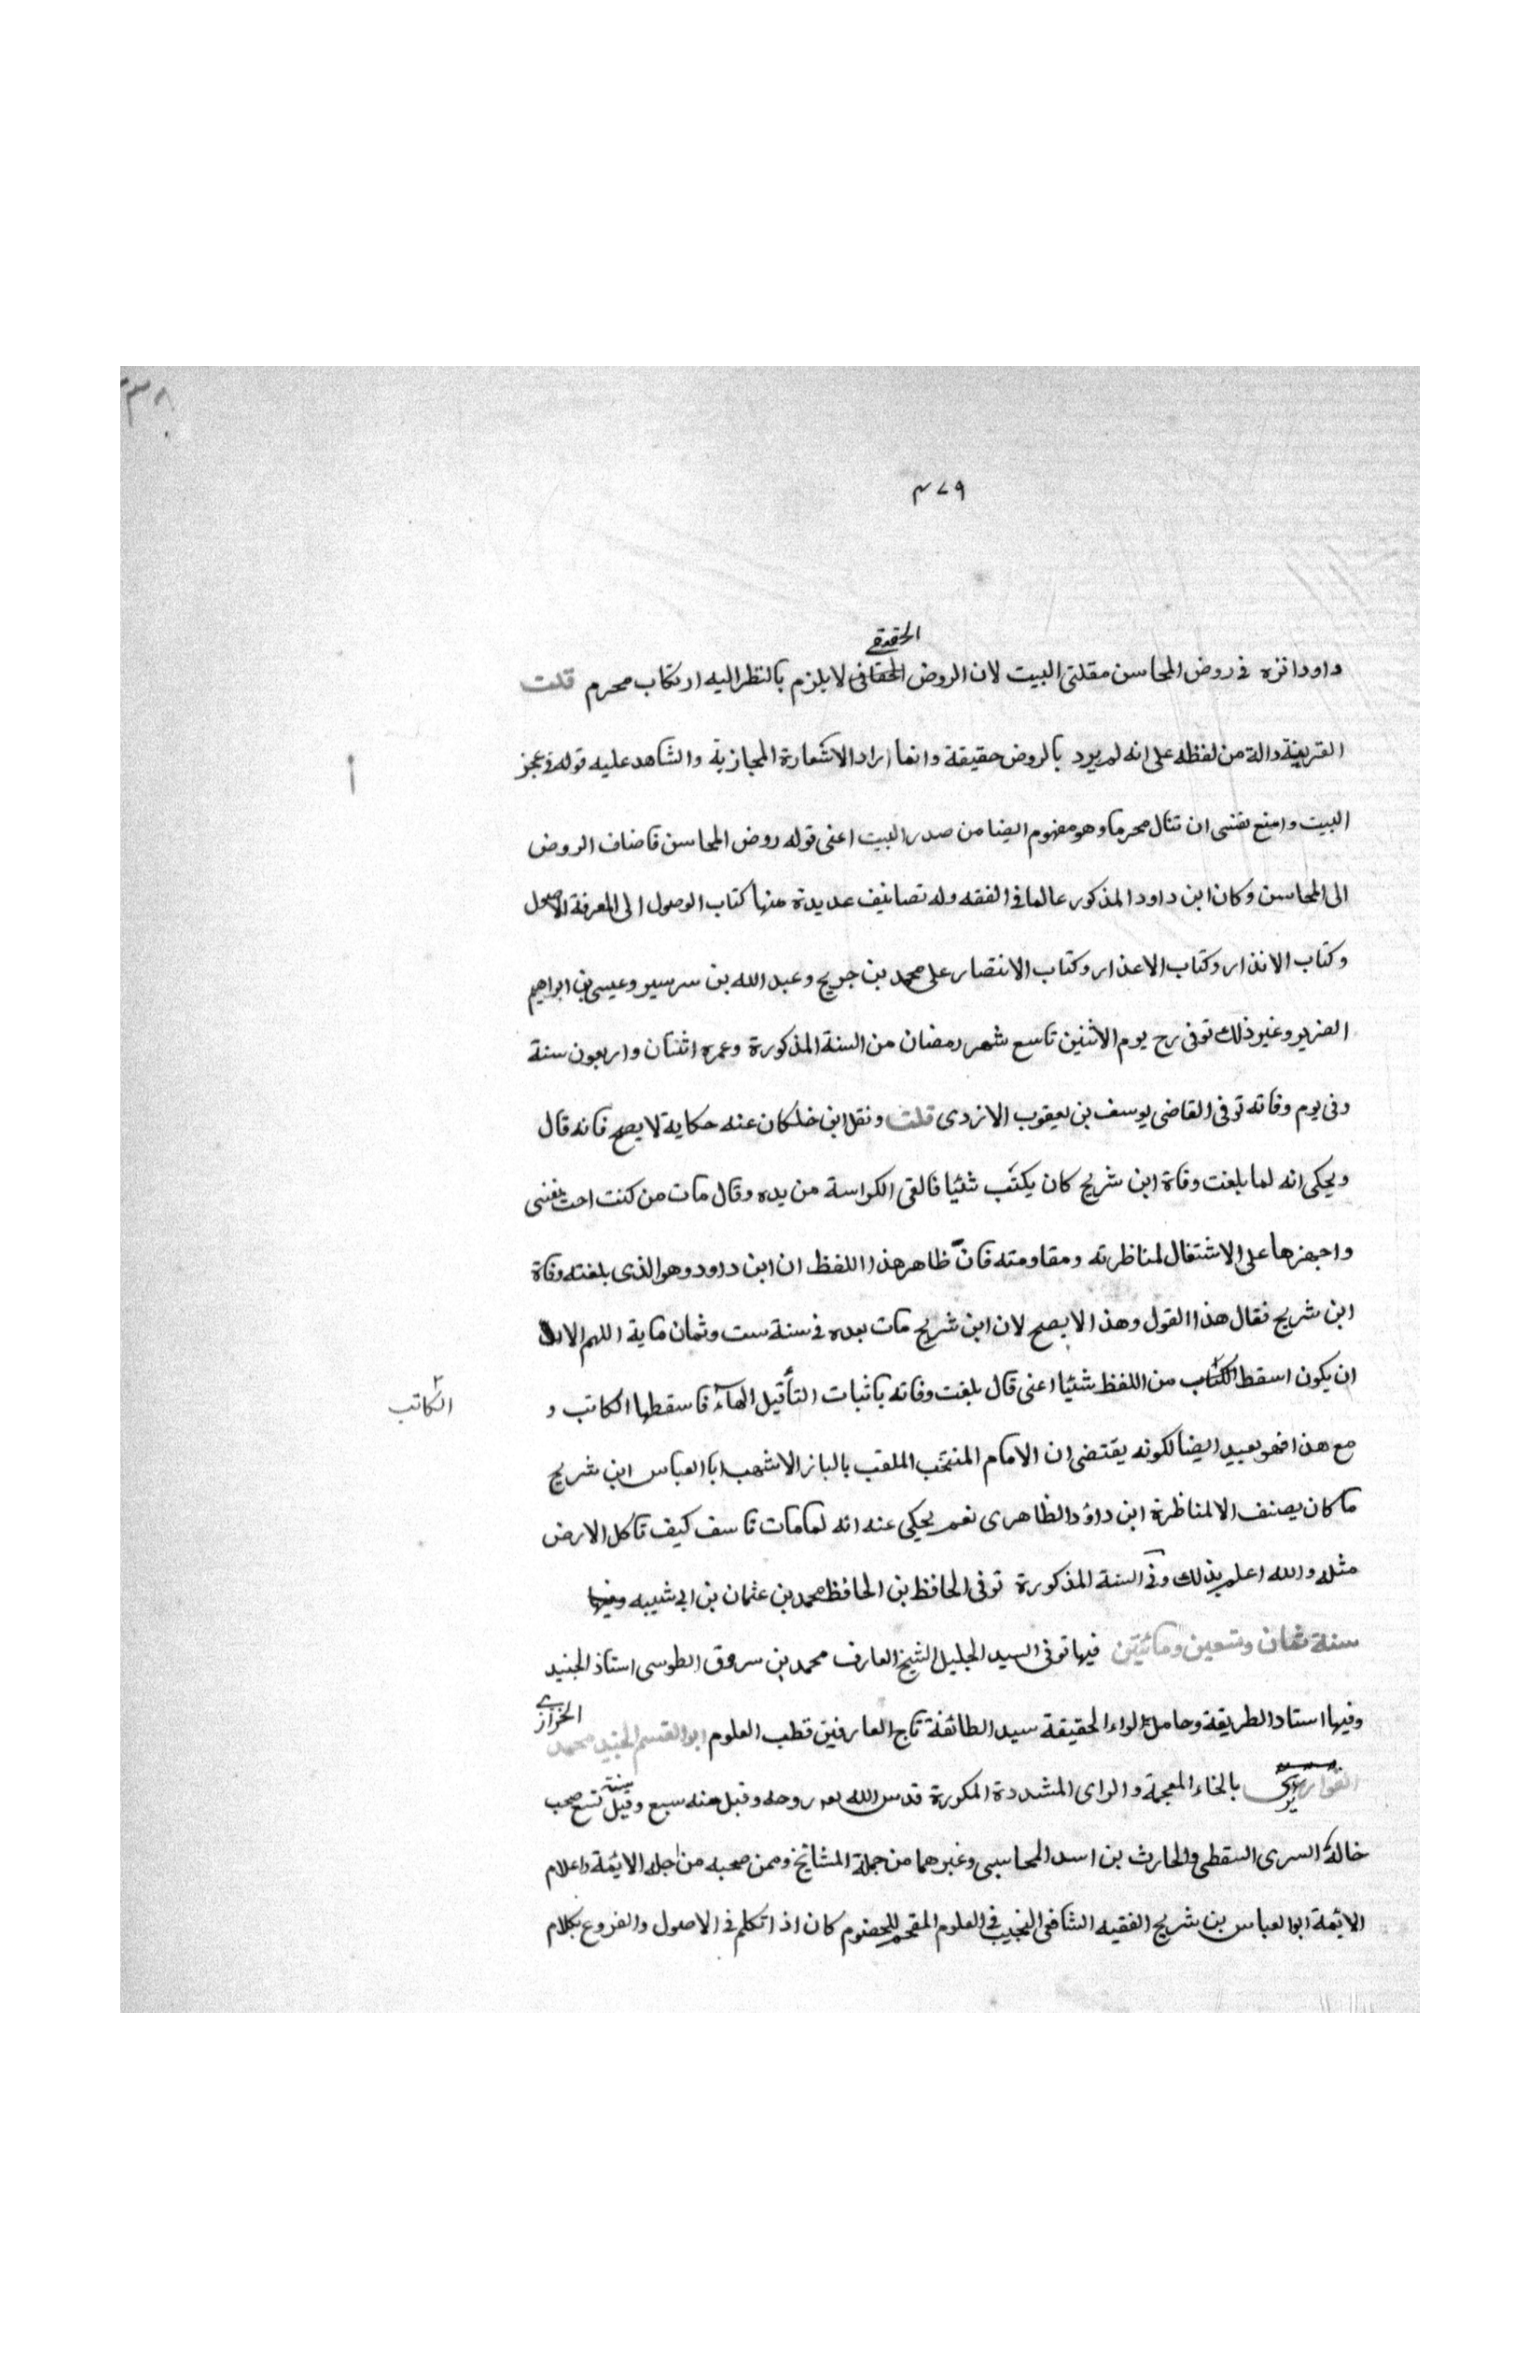 ٣٨
٤٧٩
الحقيقي
داود انزه في روض المحاسن مقلتي البيت لان الروض الحقاني لا يلزم بالنظر اليه ارتكاب محرم قلت
القرينة دالة من لفظه على انه لم يرد بالروض حقيقة وانما اراد الاستعارة المجازية والشاهد عليه قوله في عجز
البيت وامنع نفسي ان تنال محرما وهو مفهوم ايضا من صدر البيت اعني قوله روض المحاسن فاضاف الروض
الى المحاسن وكان ابن داود المذكور عالما في الفقه وله تصانيف عديدة منها كتاب الوصول الى المعرفة الاصول
وكتاب الانذار وكتاب الاعذار وكتاب الانتصار على محمد بن جريح وعبد الله بن سرسير وعيسى بن ابراهيم
الضرير وغير ذلك توفى رح يوم الاثنين تاسع شهر رمضان من السنة المذكورة وعمره اثنتان واربعون سنة
وفي يوم وفاته توفى القاضي يوسف بن يعقوب الازدى قلت ونقل ابن خلكان عنه حكاية لا يصح فانه قال
ويحكى انه لما بلغت وفاة ابن شريح كان يكتب شئيا فالقى الكراسة من يده وقال مات من كنت احث نفسي
واجهزها على الاشتغال لمناظرته ومقاومته فان ظاهر هذا اللفظ ان ابن داود وهو الذى بلغته وفاة
ابن شريح فقال هذا القول وهذا لا يصح لان ابن شريح مات بعده في سنة ست وثمان ماية اللهم الا
ان يكون اسقط الكتاب من اللفظ شئيا اعني قال بلغت وفاته باثبات التأقيل الهآء فاسقطها الكاتب و
الكاتب
مع هذا فهو بعيد ايضا لكونه يقتضي ان الامام المنتخب الملقب بالباز الاشهب ابا العباس ابن شريح
ما كان يصنف الا لمناظرة ابن داؤد الظاهرى نعم يحكى عنه انه لما مات تاسف كيف تاكل الارض
مثله والله اعلم بذلك وفي السنة المذكورة توفى الحافظ بن الحافظ محمد بن عثمان بن ابي شيبه وفيها
سنة ثمان وتسعين ومائتين فيها توفى السيد الجليل الشيخ العارف محمد بن سروق الطوسى استاذ الجنيد
وفيها استاد الطريقة وحامل لواء الحقيقة سيد الطائفة تاج العارفين قطب العلوم ابو القسم الجنيد محمد
الخرازي
القواريري بالخاء المعجمة والزاى المشددة المكررة قدس الله روحه وقيل سنة سبع وقيل سنة تسع صحب
خاله السرى السقطى والحارث بن اسد المحاسبى وغيرهما من جملة المشائخ وممن صحبه من اجله الايمة واعلام
الايمة ابو العباس بن شريح الفقيه الشافعى النجيب في العلوم المفحم للخصوم كان اذا تكلم في الاصول والفروع بكلام